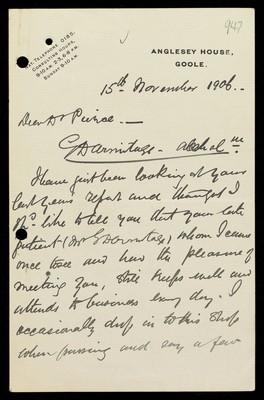 947
NAT. TELEPHONE 0185.
CONSULTING HOURS,
9-10 A.M. 2-3, 6-8 P.M.
SUNDAY 9-10 A.M.
ANGLESEY HOUSE,
GOOLE.
15th November 1906.
Dear Dr Peirce.—
G D Armitage - alcohol
I have just been looking at your
last years report and thought I
wd. like to tell you that your late
patient (Mr G D Armitage) whom I came
once to see and had the pleasure of
meeting you, still keeps well and
attends to business every day. I
occasionally drop in to his shop
when passing and say a few